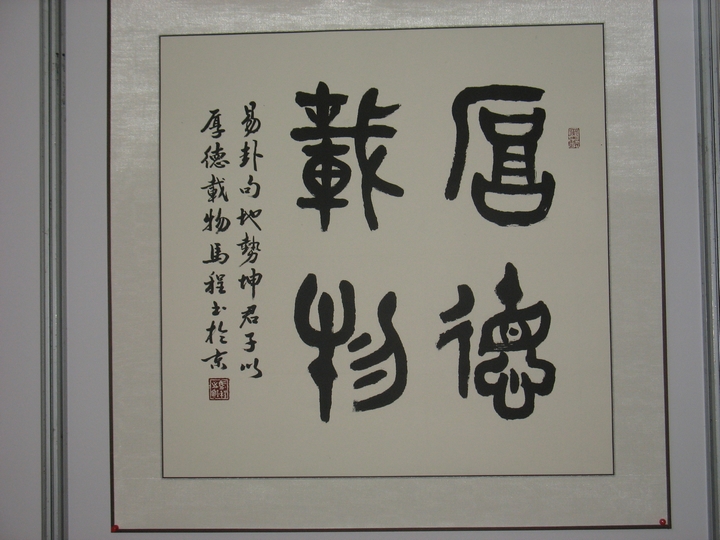 厚德
載物
易卦句地勢坤君子以
厚德載物馬程书於京